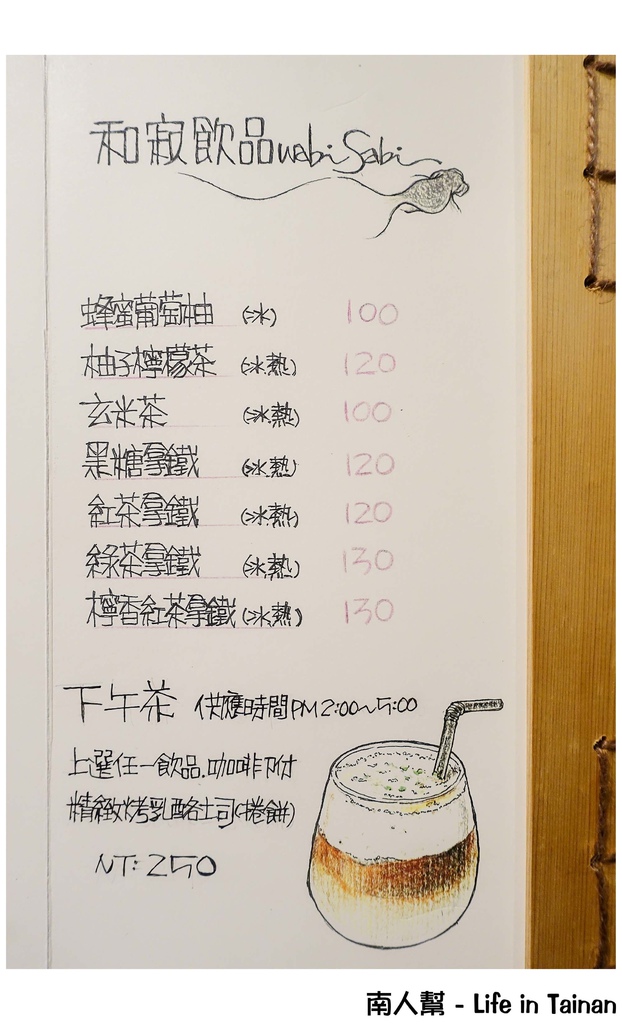 和寂飲品wabi Sabi
蜂蜜葡萄柚 (冰) 100
柚子檸檬茶 (冰.熱) 120
玄米茶 (冰.熱) 100
黑糖拿鐵 (冰.熱) 120
紅茶拿鐵 (冰.熱) 120
綠茶拿鐵 (冰.熱) 130
檸香紅茶拿鐵 (冰.熱) 130
下午茶 供應時間PM2:00~5:00
上選任一飲品.咖啡附
精緻烤乳酪吐司(捲餅)
NT: 250
南人幫 - Life in Tainan